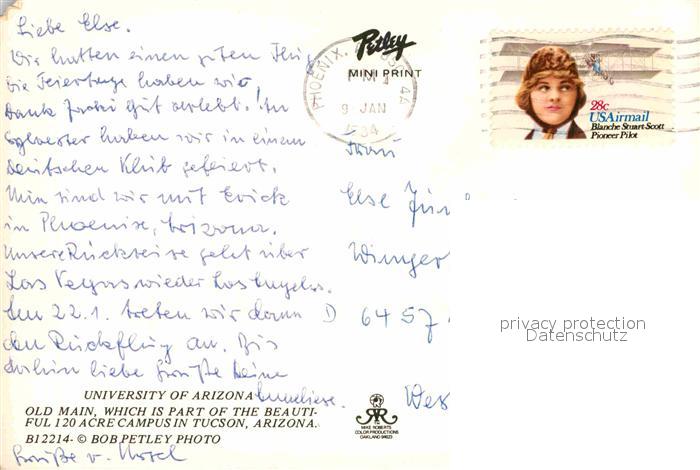 Liebe Else.
Wir hatten einen guten Flug
Die Feiertage haben wir
Dank gut verlebt! An
Sylvester haben wir in einem
deutschen Klub gefeiert.
Nun sind wir mit Erich
in Phoenix, Arizona.
Unsere Rückreise geht über
Las Vegas wieder Los Angeles.
Am 22.1. treten wir dann
den Rückflug an. Bis
dahin liebe Grüße Deine
Anneliese.
Grüße v. Horst
UNIVERSITY OF ARIZONA
OLD MAIN, WHICH IS PART OF THE BEAUTI-
FUL 120 ACRE CAMPUS IN TUCSON, ARIZONA.
B12214- © BOB PETLEY PHOTO
Petley
MINI PRINT
PHOENIX,
PM
9 JAN
1984
28c
USAirmail
Blanche Stuart Scott
Pioneer Pilot
Frau
Else
D 6457
MIKE ROBERTS
COLOR PRODUCTIONS
OAKLAND 94623
privacy protection
Datenschutz